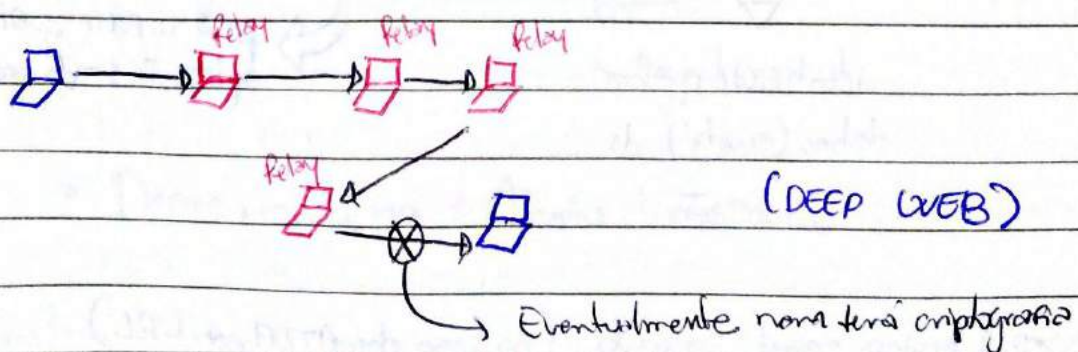 Relay Relay Relay
Relay
(DEEP WEB)
Eventualmente nom terá criptografia